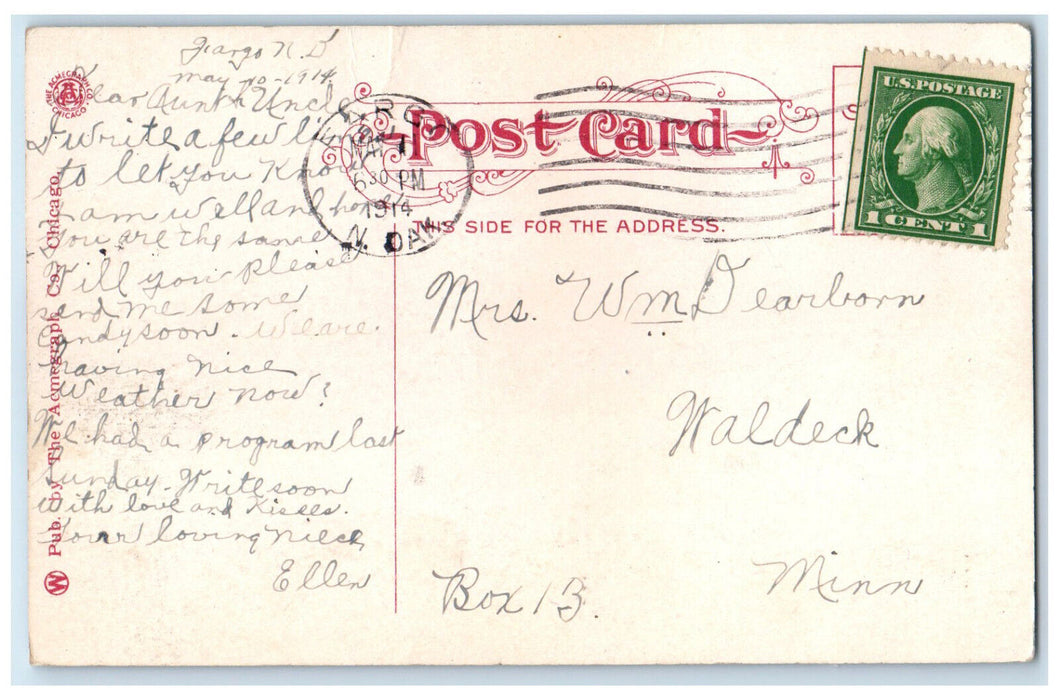 Fargo N. D
May 10 - 1914
Dear Aunt & Uncle
I write a few li
to let you Know
I am well and hope
You are the same
Will you please
send me some
Candy soon. We are
having nice
Weather now?
We had a program last
Sunday. Write soon
With love and Kisses.
Your loving niece
Ellen
THE ACMEGRAPH CO
CHICAGO
Pub. by The Acmegraph Co., Chicago.
W
FARGO
MAY
6 30 PM
1914
N. DAK.
Post Card
THIS SIDE FOR THE ADDRESS.
U.S. POSTAGE
1 CENT 1
Mrs. Wm Dearborn
Waldeck
Minn
Box 13.